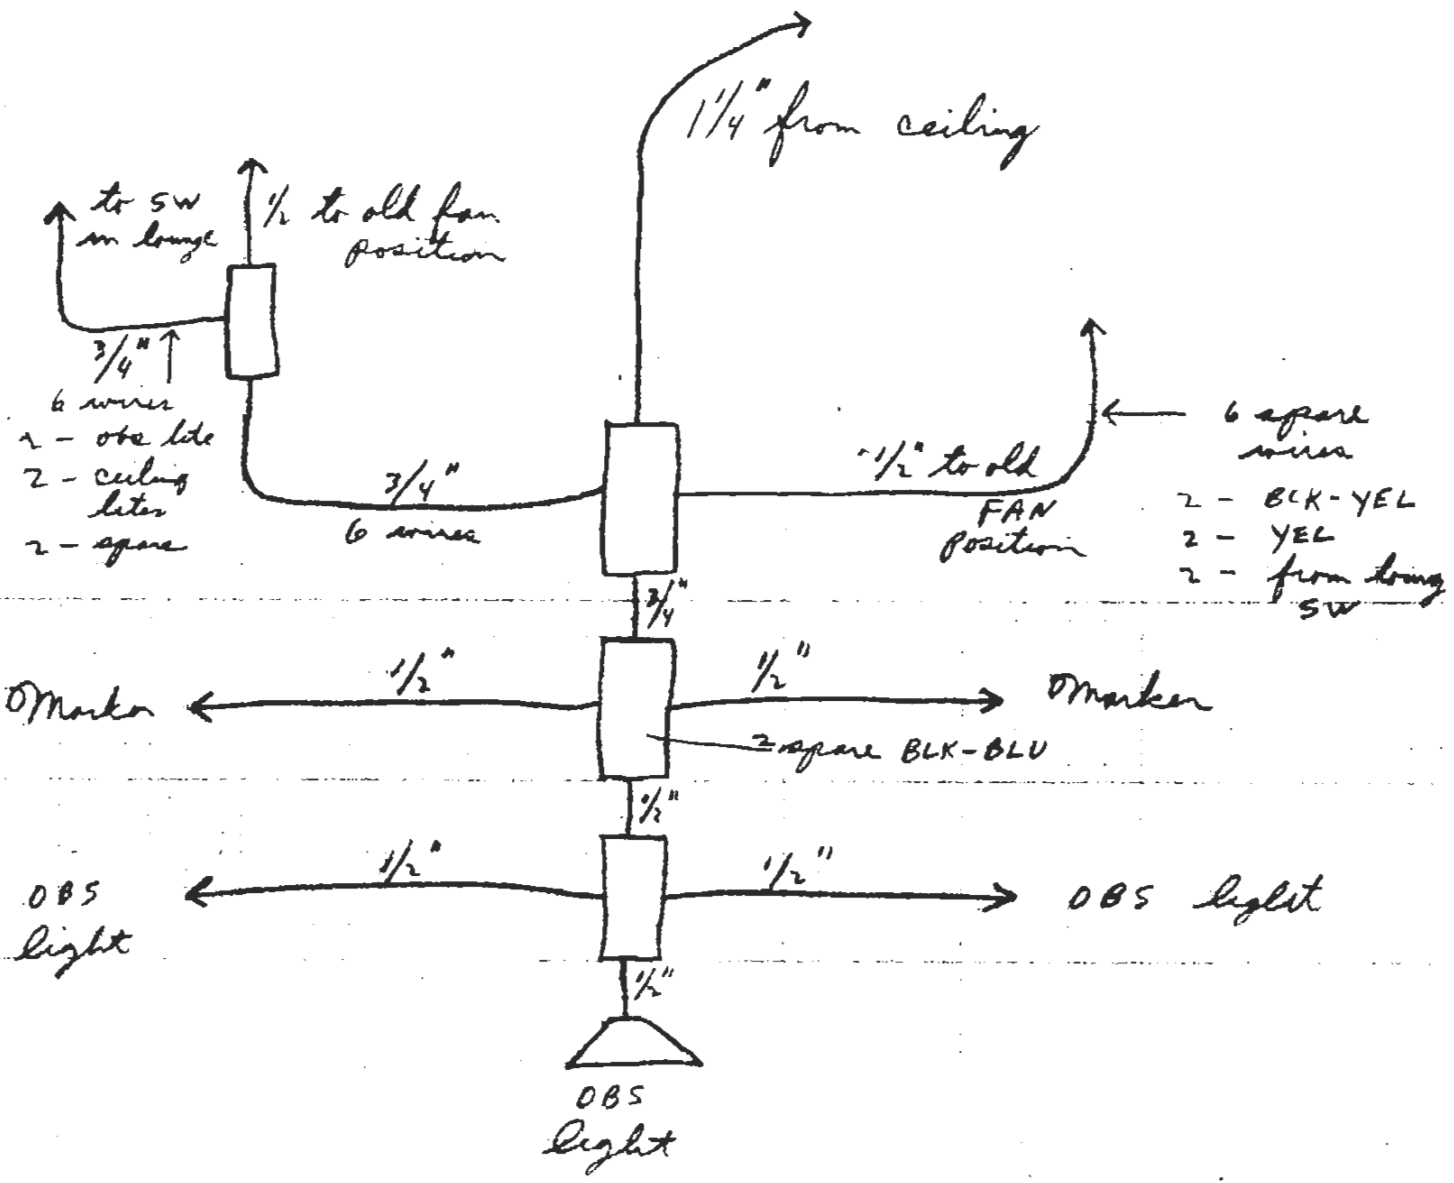 1 1/4" from ceiling
to SW
in lounge
1/2 to old fan
position
3/4"
6 wires
2 - obs lite
2 - ceiling
lites
2 - spare
3/4"
6 wires
1/2" to old
FAN
Position
6 spare
wires
2 - BLK-YEL
2 - YEL
2 - from loung
SW
3/4"
Marker
1/2"
1/2"
Marker
2 spare BLK-BLU
1/2"
OBS
light
1/2"
1/2"
OBS light
1/2"
OBS
light